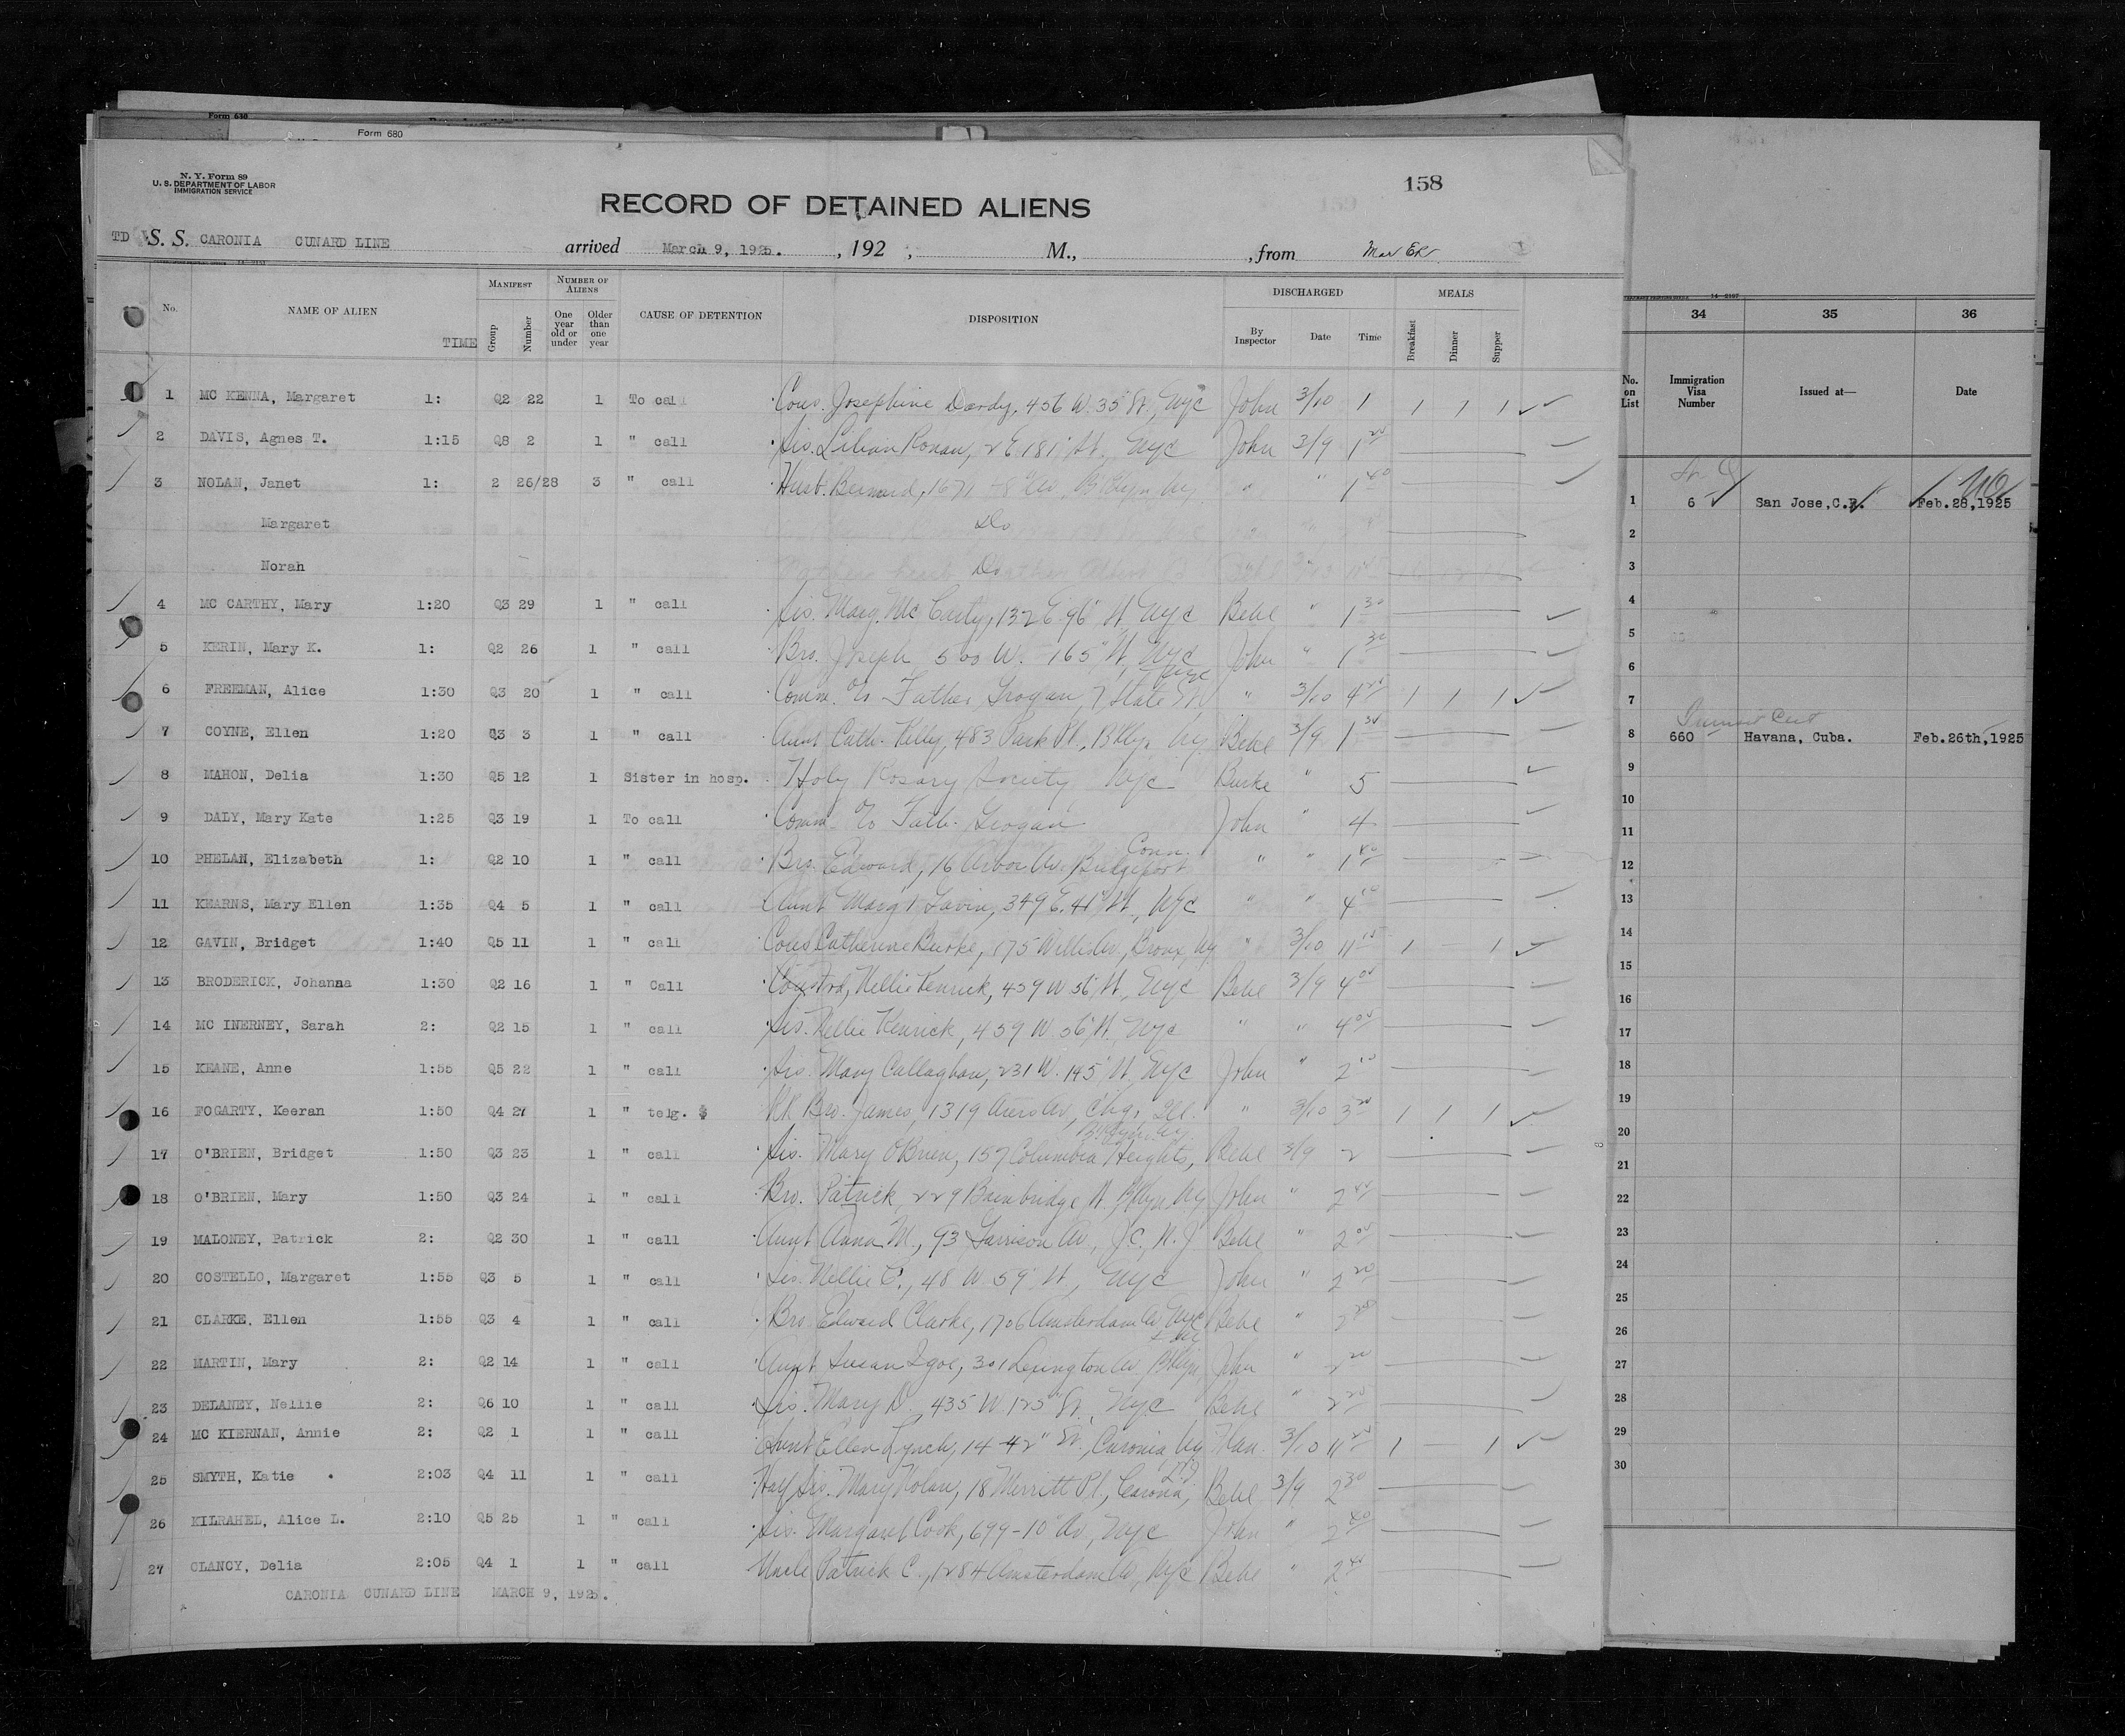 Form 630
Form 680
N. Y. Form 89
U. S. DEPARTMENT OF LABOR
IMMIGRATION SERVICE
158
RECORD OF DETAINED ALIENS
TD S. S. CARONIA CUNARD LINE arrived March 9, 1925. , 192 ; M., , from
No. NAME OF ALIEN TIME MANIFEST Group Number NUMBER OF ALIENS One year old or under Older than one year CAUSE OF DETENTION DISPOSITION DISCHARGED By Inspector Date Time MEALS Breakfast Dinner Supper
1 MC KENNA, Margaret 1: Q2 22 1 To call Cous. Josephine Dardy, 456 W. 35" St., NYC John 3/10 1 1 1 1
2 DAVIS, Agnes T. 1:15 Q8 2 1 " call Sis. Lilian Ronan, 2 E 181" St., NYC John 3/9 1 20
3 NOLAN, Janet 1: 2 26/28 3 " call Husb. Bernard, 1671 Bklyn Ny. " " 1 40
Margaret Do
Norah Do
4 MC CARTHY, Mary 1:20 Q3 29 1 " call Sis. Mary Mc Carty, 132 E. 96" St NYC Behl " 1 30
5 KERIN, Mary K. 1: Q2 26 1 " call Bro. Joseph 500 W. 165" St, NYC John " 1 30
6 FREEMAN, Alice 1:30 Q3 20 1 " call Comm. to Father Grogan, 7 State St NYC " 3/10 4 20 1 1 1
7 COYNE, Ellen 1:20 Q3 3 1 " call Aunt Cath. Kelly, 483 Park Pl., Bklyn Ny Behl 3/9 1 30
8 MAHON, Delia 1:30 Q5 12 1 Sister in hosp. Holy Rosary Society NYC Burke " 5
9 DALY, Mary Kate 1:25 Q3 19 1 To call Comm. to Fath. Grogan John " 4
10 PHELAN, Elizabeth 1: Q2 10 1 " call Bro. Edward, 76 Arbor Av. Bridgeport Conn. " " 1 40
11 KEARNS, Mary Ellen 1:35 Q4 5 1 " call Aunt Marg't Gavin, 349 E. 41" St., NYC " " 4 10
12 GAVIN, Bridget 1:40 Q5 11 1 " call Cous Catherine Burke, 175 Willis Av., Bronx, Ny " 3/10 11 15 1 1
13 BRODERICK, Johanna 1:30 Q2 16 1 " Call Nellie Kenrick, 459 W 56" St., NYC Behl 3/9 4 00
14 MC INERNEY, Sarah 2: Q2 15 1 " call Sis. Nellie Kenrick, 459 W. 56" St. NYC " " 4 00
15 KEANE, Anne 1:55 Q5 22 1 " call Sis. Mary Callaghan, 231 W. 145" St NYC John " 2 10
16 FOGARTY, Keeran 1:50 Q4 27 1 " telg. RR Bro. James, 1319 Av, Chg, Ill. " 3/10 3 20 1 1 1
17 O'BRIEN, Bridget 1:50 Q3 23 1 " call Sis. Mary O'Brien, 157 Columbia Heights, Bklyn Ny Behl 3/9 2
18 O'BRIEN, Mary 1:50 Q3 24 1 " call Bro. Patrick, 229 Bainbridge St. Bklyn Ny John " 2 40
19 MALONEY, Patrick 2: Q2 30 1 " call Aunt Anna M., 93 Garrison Av., J.C, N.J Behl " 2 00
20 COSTELLO, Margaret 1:55 Q3 5 1 " call Sis. Nellie C., 48 W. 59" St, NYC John " 2 20
21 CLARKE, Ellen 1:55 Q3 4 1 " call Bro. Edward Clarke, 1706 Amsterdam Av NYC Behl " 2 20
22 MARTIN, Mary 2: Q2 14 1 " call Aunt Susan Igoe, 301 Lexington Av Bklyn John " 2 20
23 DELANEY, Nellie 2: Q6 10 1 " call Sis. Mary D. 435 W. 125" St., NYC Behl " 2 20
24 MC KIERNAN, Annie 2: Q2 1 1 " call Aunt Ellen Lynch, 14-42" St., Caronia, Ny 3/10 11 20 1 1
25 SMYTH, Katie 2:03 Q4 11 1 " call Half Sis. Mary Nolan, 18 Merritt Pl., Carona, L.I. Behl 3/9 2 30
26 KILRAHEL, Alice L. 2:10 Q5 25 1 " call Sis. Margaret Cook, 699-10" Av, NYC John " 2 40
27 CLANCY, Delia 2:05 Q4 1 1 " call Uncle Patrick C., 1284 Amsterdam Av, NYC Behl " 2 40
CARONIA CUNARD LINE MARCH 9, 1925.
34 35 36
No. on List Immigration Visa Number Issued at— Date
1 6 San Jose, C.R. Feb. 28, 1925
2
3
4
5
6
7
8 660 Havana, Cuba. Feb. 26th, 1925
9
10
11
12
13
14
15
16
17
18
19
20
21
22
23
24
25
26
27
28
29
30